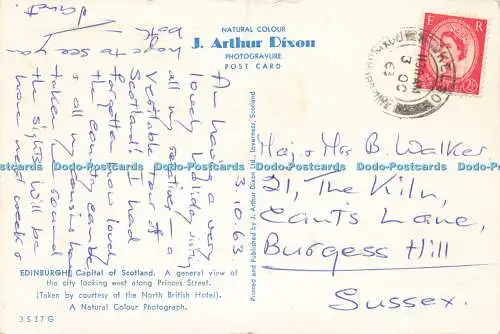 NATURAL COLOUR
J. Arthur Dixon
PHOTOGRAVURE
POST CARD
3.10.63
Am having a very
lovely holiday visiting
all my relatives — a
Veritable tour of
Scotland. I had
forgotten how lovely
the country can be
taken my cousins have
me round
the sights. Will be
home next week &
hope to see you
both
Janet.
Printed and Published by J. Arthur Dixon Ltd., Inverness, Scotland
E R
KELSO
3 OC
63
Maj. & Mrs B. Walker
21, The Kiln,
Cants Lane,
Burgess Hill
Sussex.
EDINBURGH: Capital of Scotland. A general view of
the city looking west along Princes Street.
(Taken by courtesy of the North British Hotel).
A Natural Colour Photograph.
3 S 27 G
Dodo-Postcards Dodo-Postcards Dodo-Postcards Dodo-Postcards Dodo-Postcards